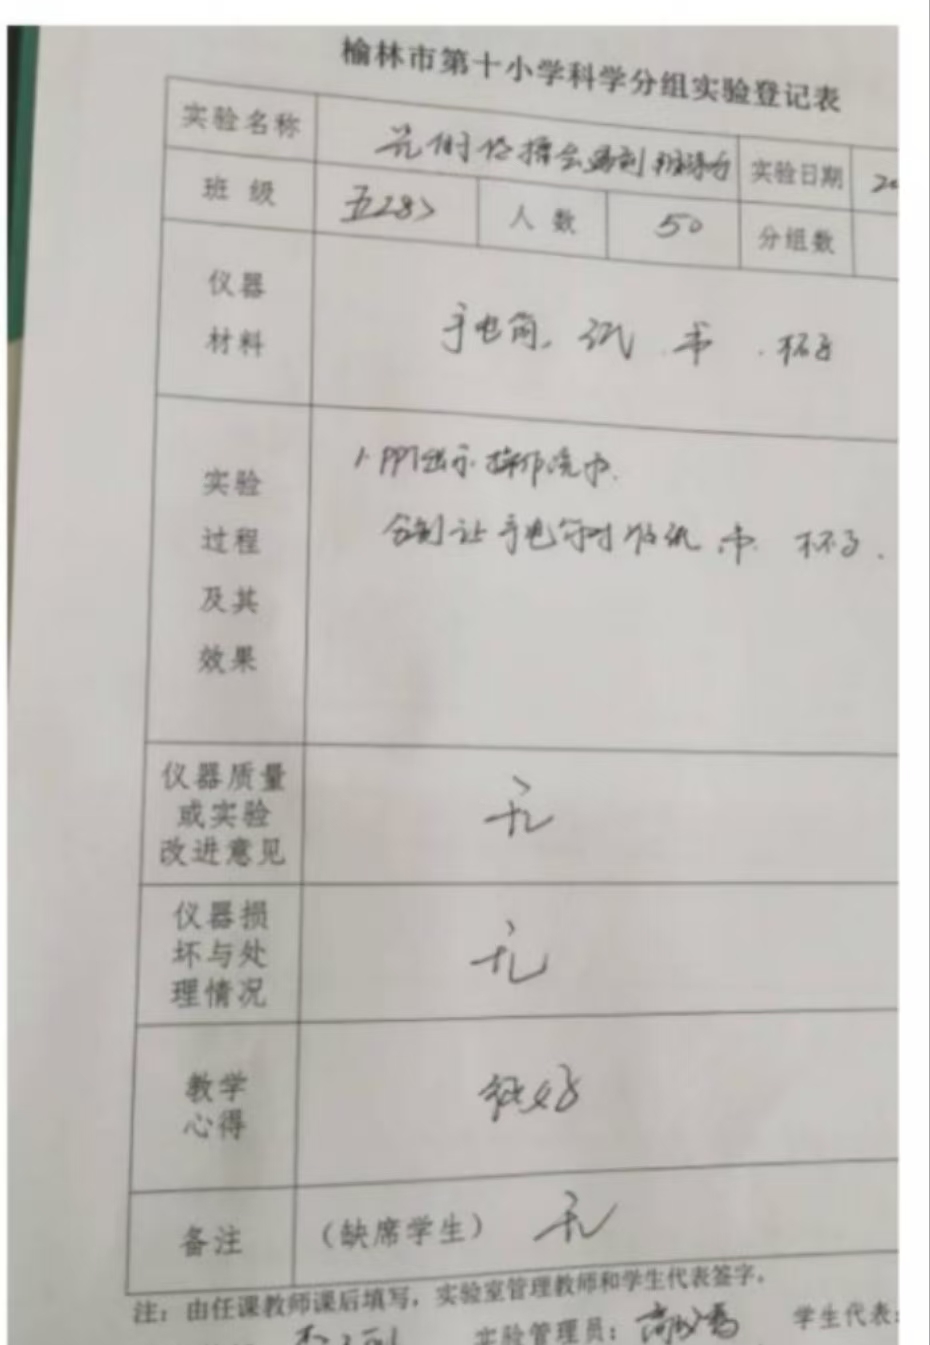 榆林市第十小学科学分组实验登记表
实验名称 光的传播会遇到 实验日期 20
班级 五<8> 人数 50 分组数
仪器
材料
手电筒、纸、书、杯子
实验
过程
及其
效果
1. PPT出示操作流中.
分别让手电筒对准纸、书、杯子.
仪器质量
或实验
改进意见
无
仪器损
坏与处
理情况
无
教学
心得
很好
备注 (缺席学生) 无
注：由任课教师课后填写，实验室管理教师和学生代表签字。
实验管理员： 学生代表：